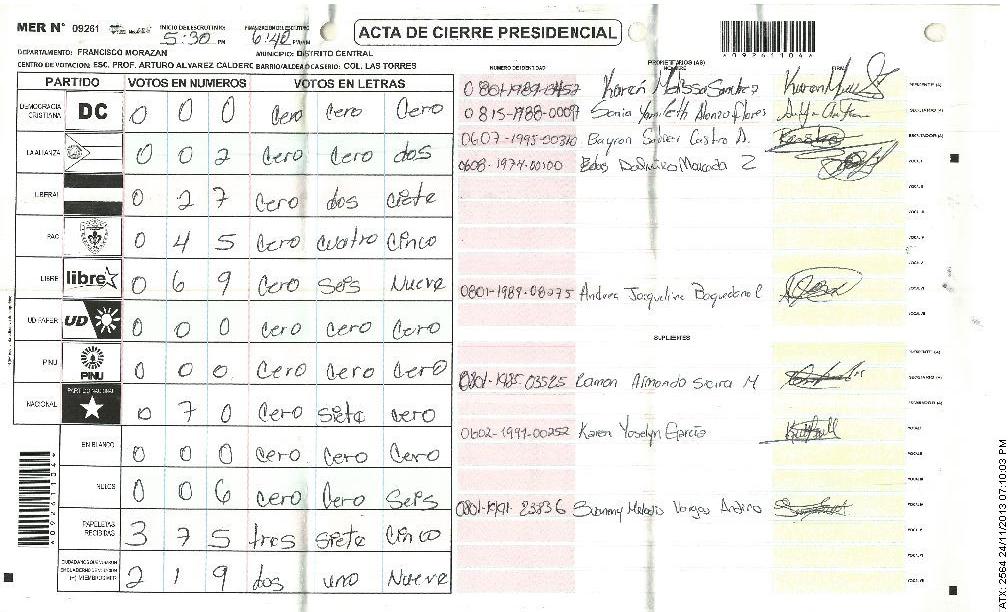 MER N° 09261 INICIO DEL ESCRUTINIO 5:30 PM 6:42
ACTA DE CIERRE PRESIDENCIAL
DEPARTAMENTO: FRANCISCO MORAZAN MUNICIPIO: DISTRITO CENTRAL
CENTRO DE VOTACION: ESC. PROF. ARTURO ALVAREZ CALDERC BARRIO/ALDEA O CASERIO: COL. LAS TORRES
PARTIDO VOTOS EN NUMEROS VOTOS EN LETRAS
DEMOCRACIA CRISTIANA DC 0 0 0 Cero Cero Cero
LA ALIANZA 0 0 2 Cero Cero dos
LIBERAL 0 2 7 Cero dos Ciete
PAC 0 4 5 Cero cuatro Cinco
LIBRE libre 0 6 9 Cero Seis Nueve
UD FAPER UD 0 0 0 Cero Cero Cero
PINU PINU 0 0 0 Cero Cero Cero
NACIONAL PARTIDO NACIONAL 0 7 0 Cero Siete cero
EN BLANCO 0 0 0 Cero Cero Cero
NULOS 0 0 6 Cero Cero Seis
PAPELETAS RECIBIDAS 3 7 5 tres Siete Cinco
CIUDADANOS QUE VOTARON EN CUADERNO DE VOTACION (+) MIEMBROS MER 2 1 9 dos uno Nueve
NUMERO DE IDENTIDAD PROPIETARIOS (AS) NOMBRE FIRMA
0801-1989-01457 Karen Melissa Sanchez PRESIDENTE (A)
0815-1988-0009 Sonia Yamileth Alonzo Flores SECRETARIO (A)
0607-1995-00310 Bayron Castro ESCRUTADOR (A)
0608-1974-00100 Z VOCAL I
VOCAL II
VOCAL III
VOCAL IV
VOCAL V
0801-1989-08075 Andrea Jacqueline Baquedano C VOCAL VI
VOCAL VII
SUPLENTES
PRESIDENTE (A)
0801-1985-03525 Ramon Armondo Sierra M SECRETARIO (A)
ESCRUTADOR (A)
0602-1991-00252 Karen Yoselyn García VOCAL I
VOCAL II
VOCAL III
0801-1991-23836 Melodio Vargas Andino VOCAL IV
VOCAL V
VOCAL VI
VOCAL VII
*09261104*
*09261104*
ATX: 2564 24/11/2013 07:10:03 PM